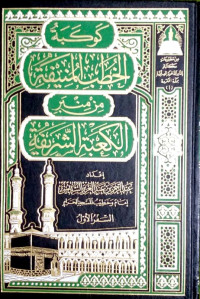 كوكبة
الخطب المنيفة
من منبر
الكعبة الشريفة
إعداد
عبد الرحمن بن عبد العزيز السديس
إمام وخطيب المسجد الحرام
السفر الأول